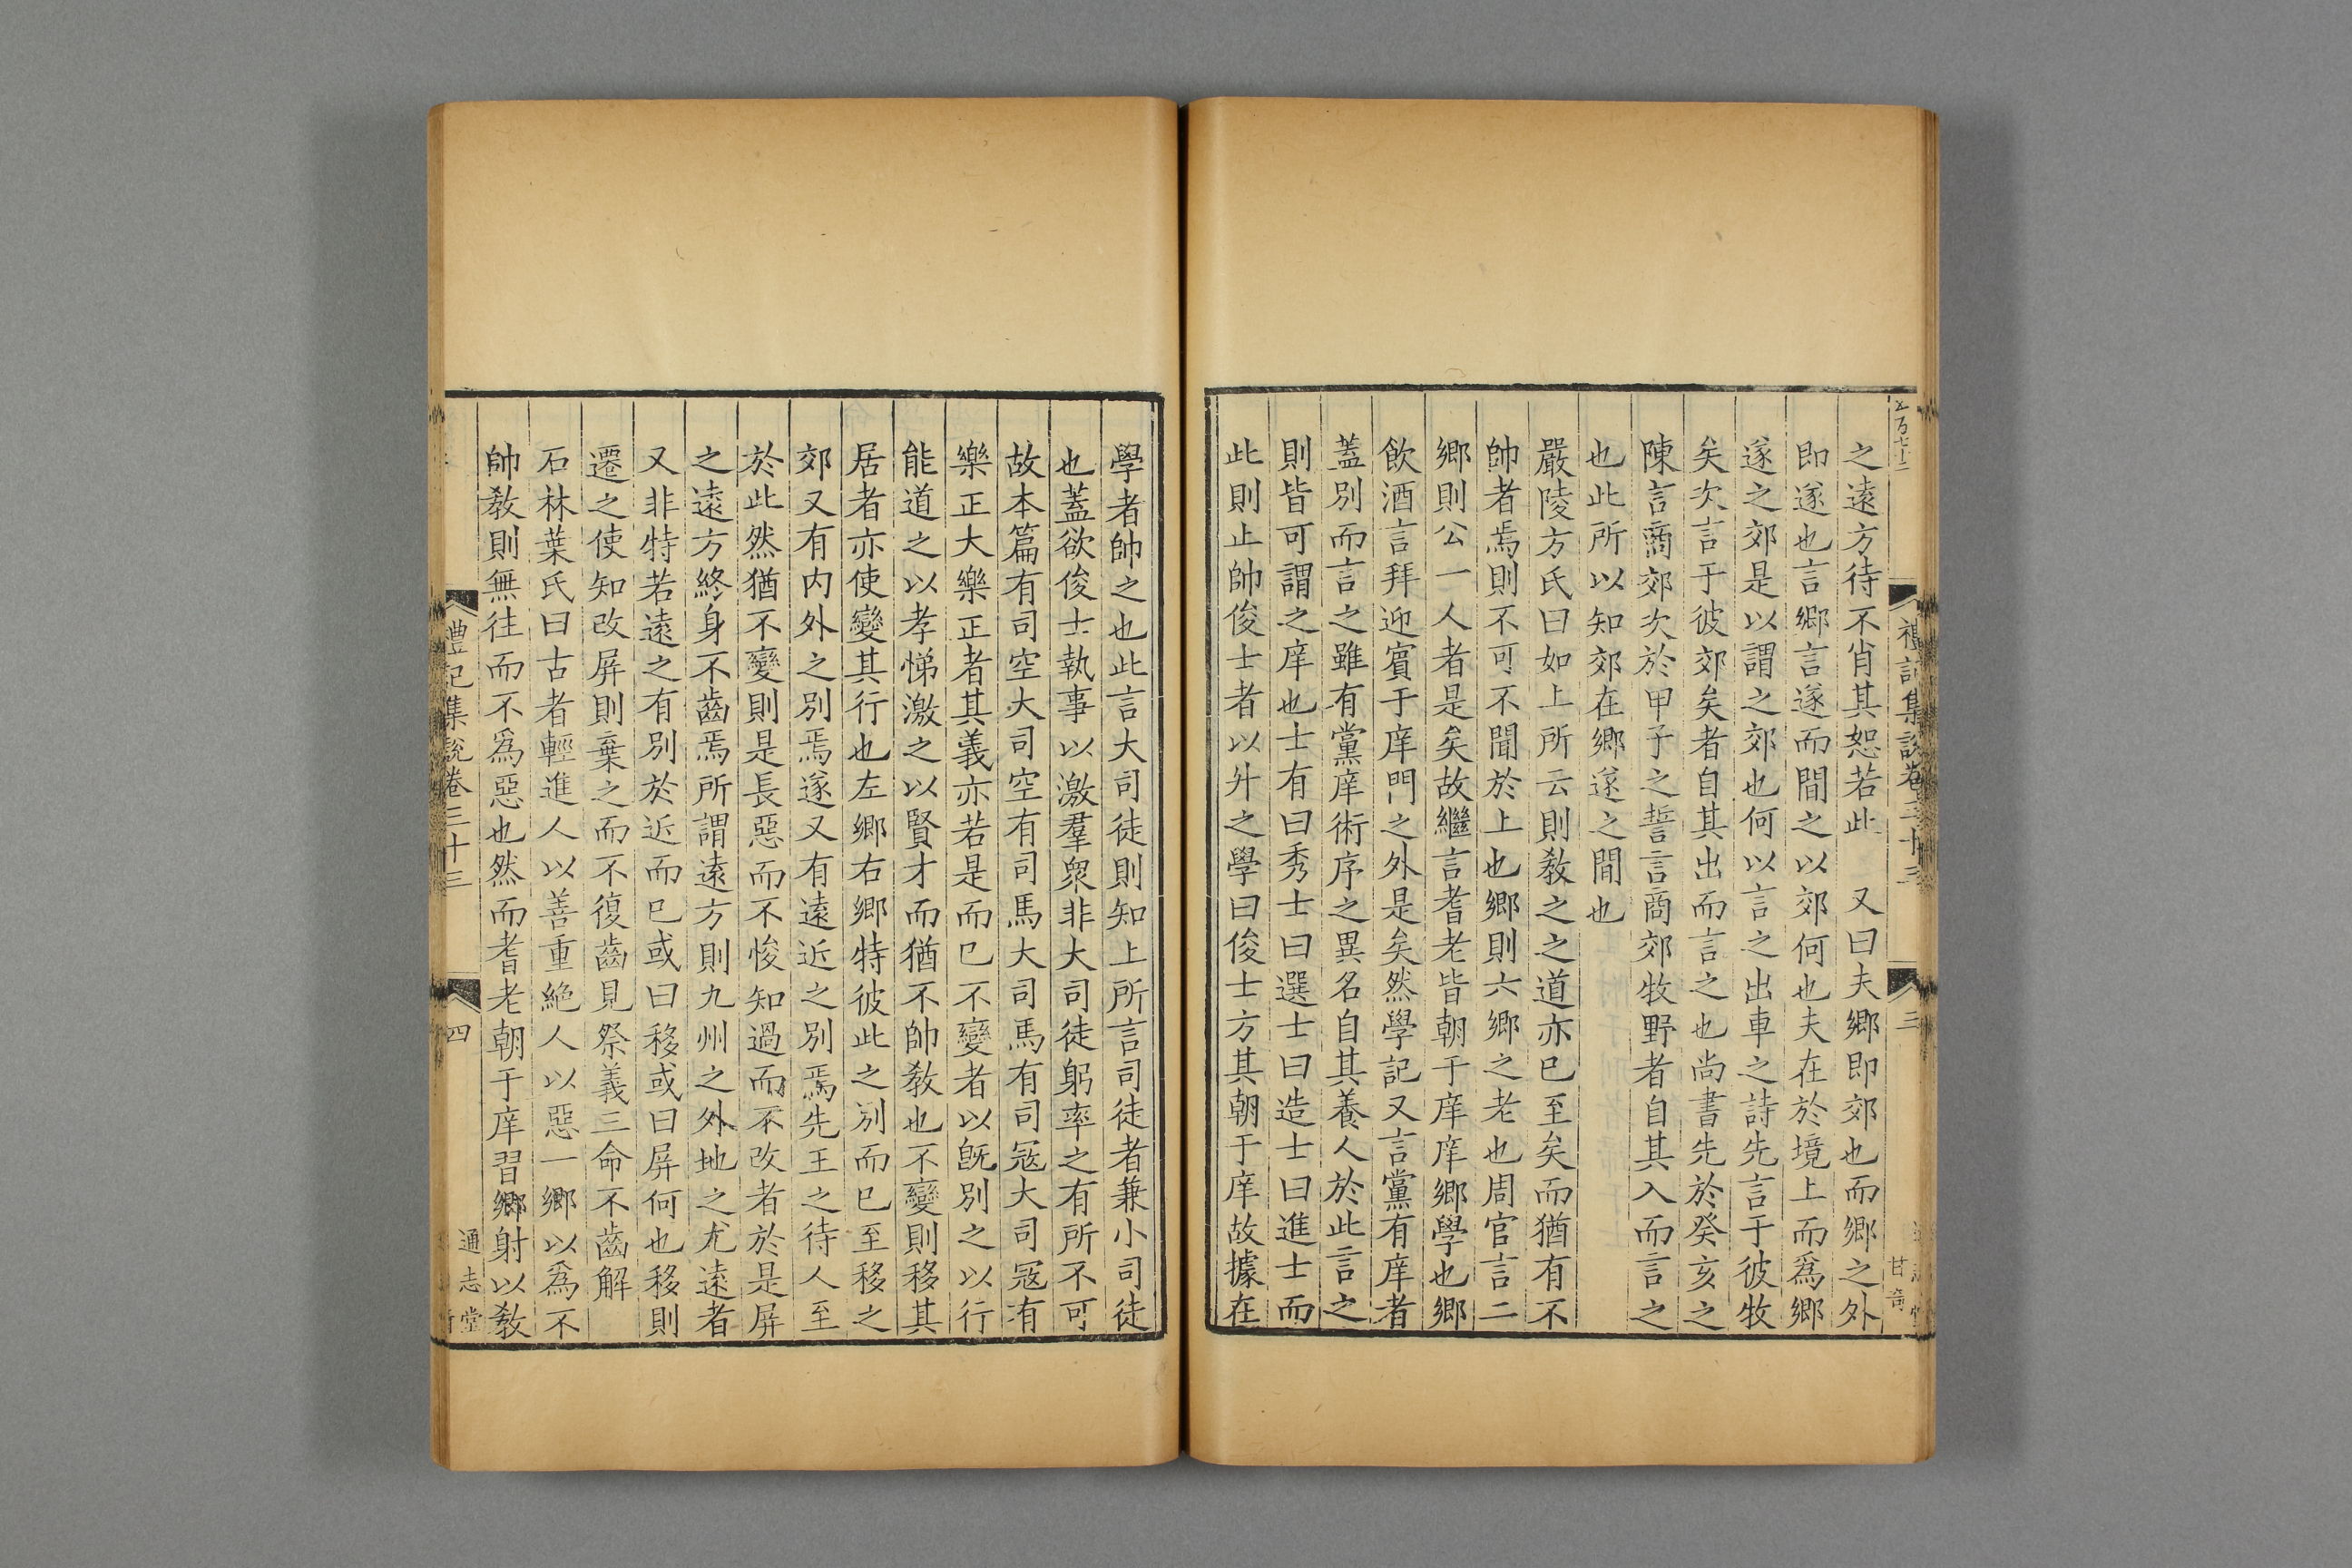 之遠方待不肖其恕若此 又曰夫鄉即郊也而鄉之外
即遂也言鄉言遂而間之以郊何也夫在於境上而爲鄉
遂之郊是以謂之郊也何以言之出車之詩先言于彼牧
矣次言于彼郊矣者自其出而言之也尚書先於癸亥之
陳言商郊次於甲子之誓言商郊牧野者自其入而言之
也此所以知郊在鄉遂之間也
嚴陵方氏曰如上所云則敎之之道亦已至矣而猶有不
帥者焉則不可不聞於上也鄉則六鄉之老也周官言二
鄉則公一人者是矣故繼言耆老皆朝于庠庠鄉學也鄉
飲酒言拜迎賓于庠門之外是矣然學記又言黨有庠者
蓋別而言之雖有黨庠術序之異名自其養人於此言之
則皆可謂之庠也士有曰秀士曰選士曰造士曰進士而
此則止帥俊士者以升之學曰俊士方其朝于庠故據在
禮記集說卷三十三
三
甘竒
學者帥之也此言大司徒則知上所言司徒者兼小司徒
也蓋欲俊士執事以激羣衆非大司徒躬率之有所不可
故本篇有司空大司空有司馬大司馬有司冦大司冦有
樂正大樂正者其義亦若是而已不變者以旣別之以行
能道之以孝悌激之以賢才而猶不帥敎也不變則移其
居者亦使變其行也左鄉右鄉特彼此之別而已至移之
郊又有内外之別焉遂又有遠近之別焉先王之待人至
於此然猶不變則是長惡而不悛知過而不改者於是屏
之遠方終身不齒焉所謂遠方則九州之外地之尤遠者
又非特若遠之有別於近而已或曰移或曰屏何也移則
遷之使知改屏則棄之而不復齒見祭義三命不齒解
石林葉氏曰古者輕進人以善重絶人以惡一鄉以爲不
帥敎則無往而不爲惡也然而耆老朝于庠習鄉射以敎
禮記集說卷三十三
四
通志堂